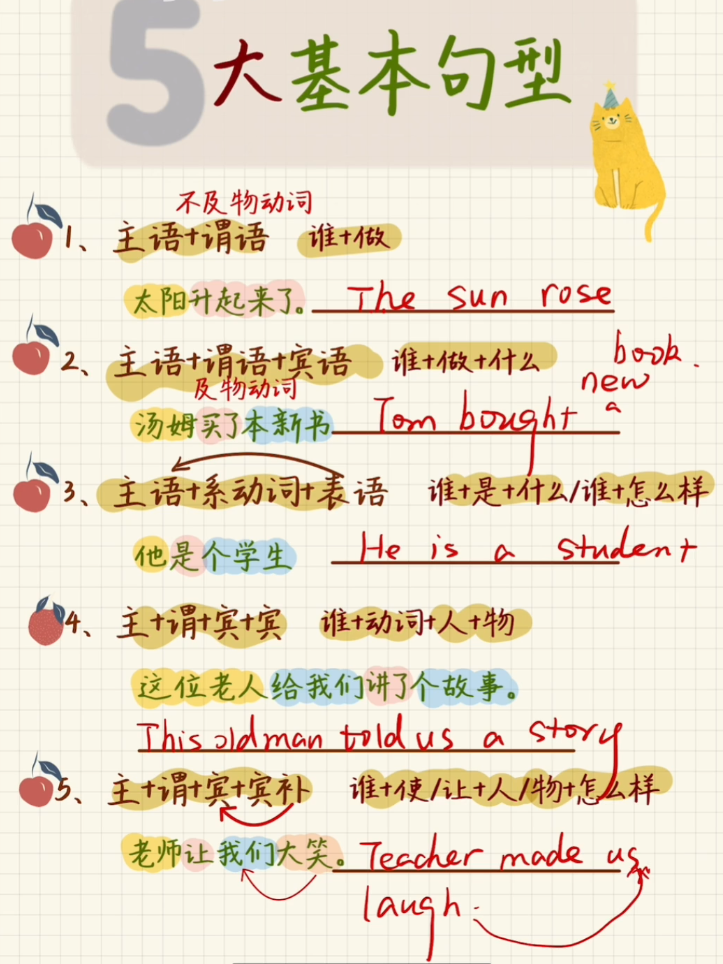 5大基本句型
不及物动词
1、主语+谓语 谁+做
太阳升起来了。 The sun rose
2、主语+谓语+宾语 谁+做+什么
及物动词
汤姆买了本新书 Tom bought a new book.
3、主语+系动词+表语 谁+是+什么/谁+怎么样
他是个学生 He is a student
4、主+谓+宾+宾 谁+动词+人+物
这位老人给我们讲了个故事。
This old man told us a story
5、主+谓+宾+宾补 谁+使/让+人/物+怎么样
老师让我们大笑。 Teacher made us
laugh.